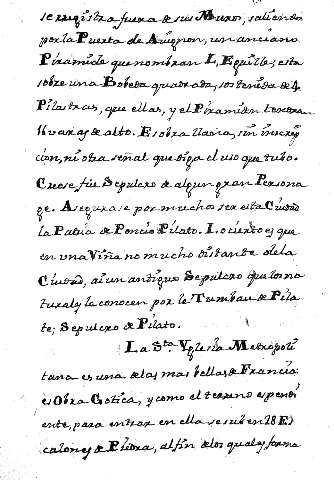 se registra fuera de sus Muros, saliendo
por la Puerta de Avignon, un anciano
Piramide que nombran L Eguille; esta
sobre una Bobeda quadrada, sostenida de 4
Pilastras, que ellas, y el Piramiden tocaran
11 varas de alto. Es obra llana, sin inscrip
cion, ni otra señal que diga el uso que tubo.
Creese fue Sepulcro de algun gran Persona
ge. Asegurase por muchos ser esta Ciudad
la Patria de Poncio Pilato. Lo cierto es que
en una Viña no mucho distante de la
Ciudad, ai un antiguo Sepulcro que los na
turales la conocen por le Tumbau de Pila
te; Sepulcro de Pilato.
La Sta. Yglesia Metropoli
tana es una de las mas bellas de Francia
es Obra Gotica, y como el terreno es pendi
ente, para entrar en ella se suben 28 Es
calones de Piedra, al fin de los quales forma